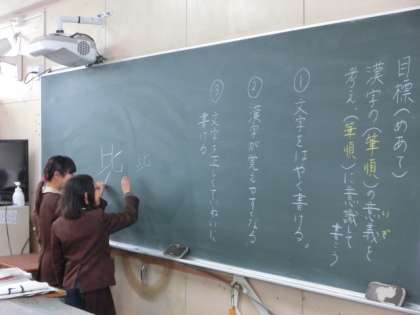 目標(めあて)
漢字の(筆順)の意義を
考え、(筆順)に意識して書こう
①文字をはやく書ける。
②漢字が覚えやすくなる
③文字を正しくていねいに
書ける
比
比